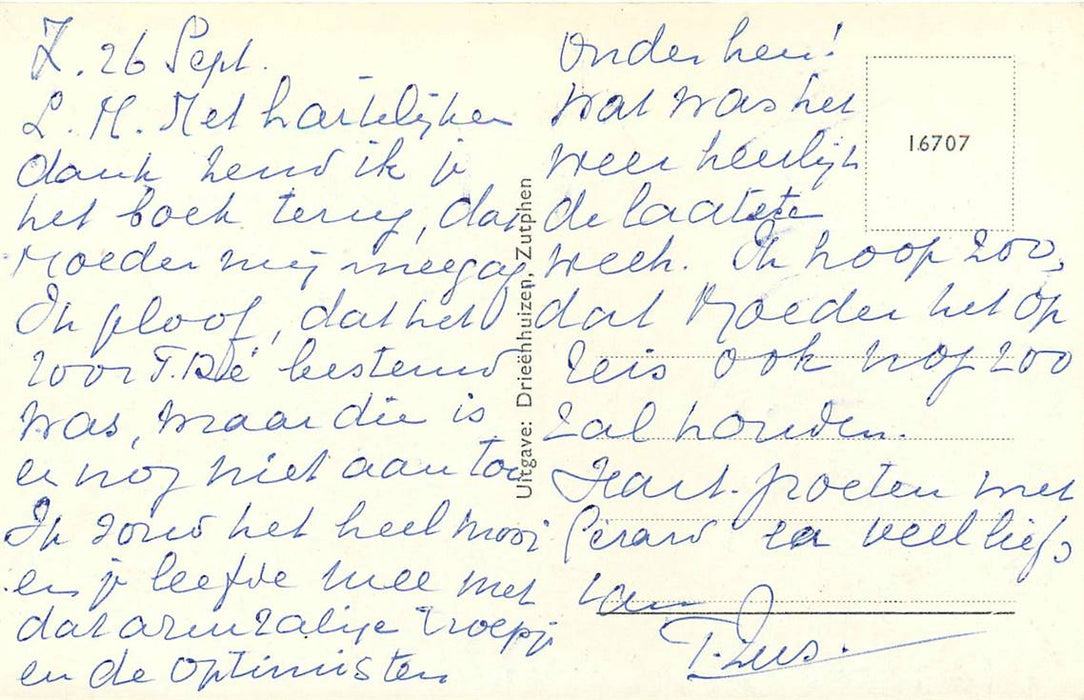 Z. 26 Sept.
L. M. Met hartelijken
dank zend ik je
het boek terug, dat
Moeder mij meegaf.
Ik geloof, dat het
voor T. Dé bestemd
was, maar die is
er nog niet aan toe
Ik vond het heel mooi
en je leefde mee met
dat armzalige troepje
en de optimisten
onder hen!
Wat was het
weer heerlijk
de laatste
week. Ik hoop zoo,
dat Moeder het op
reis ook nog zoo
zal houden.
Hart. groeten met
Gerard en veel liefs
van
T. Zus.
Uitgave: Drieënhuizen, Zutphen
16707